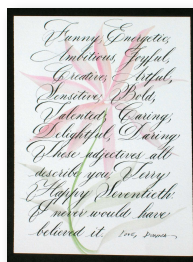 Funny, Energetic,
Ambitious, Joyful,
Creative, Artful,
Sensitive, Bold,
Talented, Caring,
Delightful, Daring
These adjectives all
describe you, Terry
Happy Seventieth
I never would have
believed it. Love,